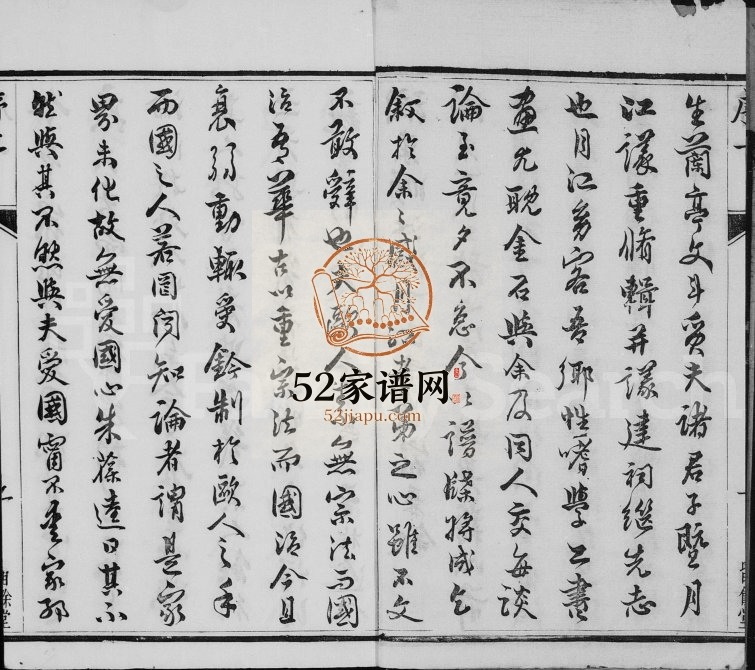 生蘭亭文斗質夫諸君子暨月
江議重脩輯并議建祠繼先志
也月江多客吾鄉性嗜學工書
畫尤耽金石與余及同人交每談
論至竟夕不怠今 譜牒將成乞
敘於余 之心雖不文
不敢辭也夫歐人 無宗法而國
治吾華古以重宗法而國治今且
衰弱動輒受鈐制於歐人之手
而國之人若罔聞知論者謂是家
界未化故無愛國心朱葆逵曰其不
然與其不然與夫愛國甯不愛家耶
序一
52家谱网
52jiapu.com